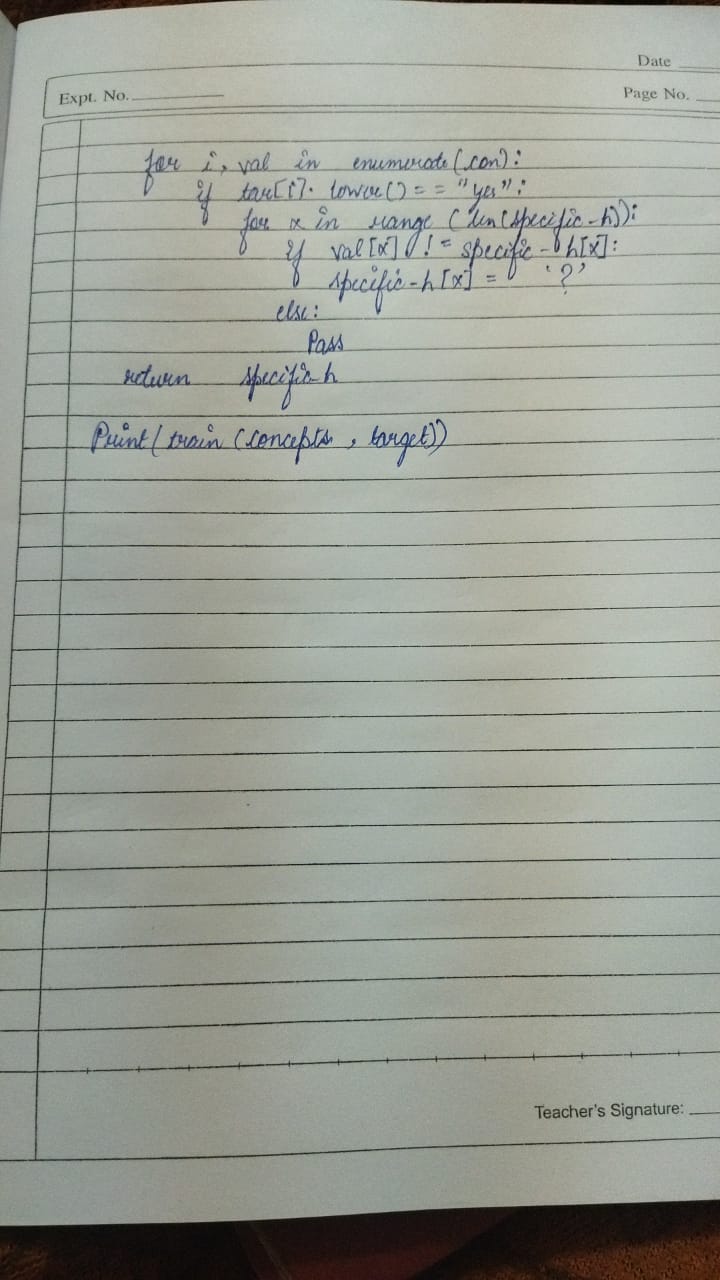 Date
Expt. No.
Page No.
for i, val in enumerate (con):
if tar[i]. lower() == "yes":
for x in range (len(specific-h)):
if val[x] != specific-h[x]:
specific-h[x] = '?'
else:
Pass
return specific-h
Print( train (concepts , target))
Teacher's Signature: